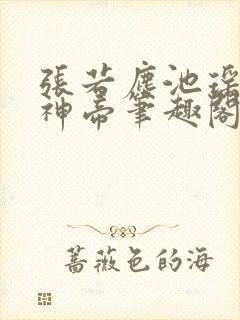 張若塵池瑤
神帝筆趣閣
薔薇色的海